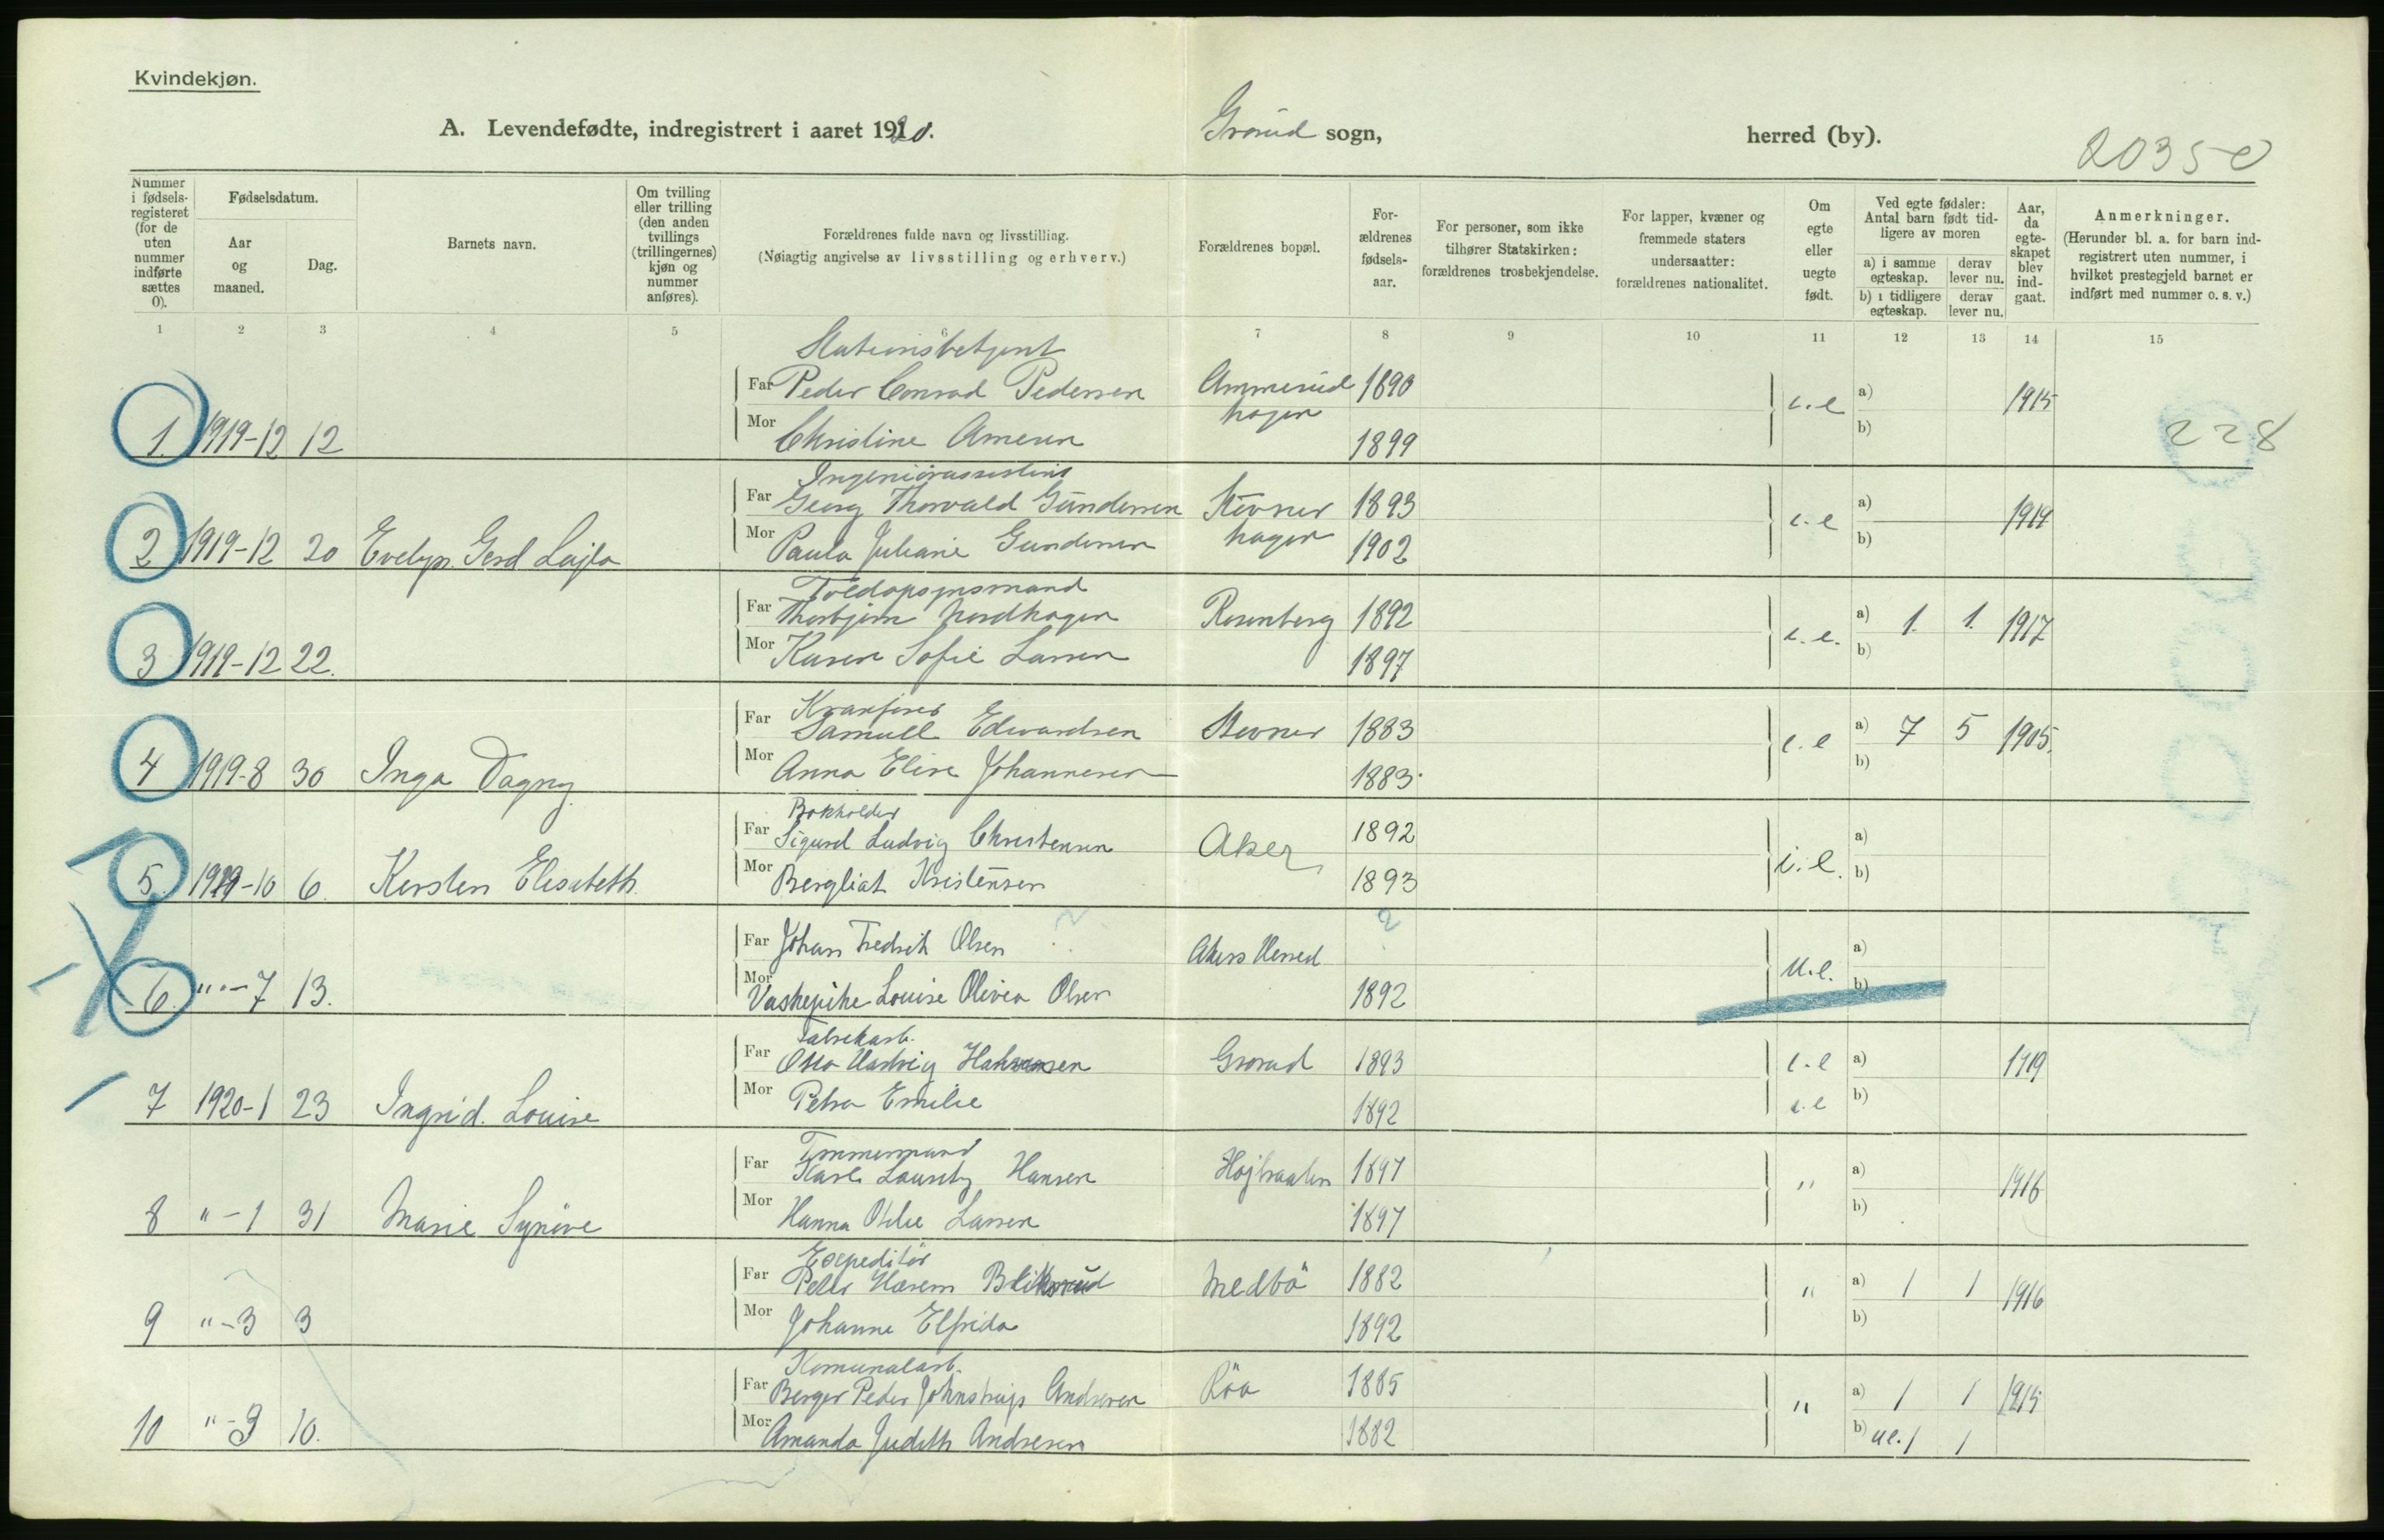 Kvindekjøn.
A. Levendefødte, indregistrert i aaret 1920.
Grorud sogn,
herred (by).
20350
Nummer i fødsels-registeret (for de uten nummer indførte sættes 0).
Fødselsdatum.
Aar og maaned.
Dag.
Barnets navn.
Om tvilling eller trilling (den anden tvillings (trillingernes) kjøn og nummer anføres).
Forældrenes fulde navn og livsstilling.
(Nøiagtig angivelse av livsstilling og erhverv.)
Forældrenes bopæl.
For-ældrenes fødsels-aar.
For personer, som ikke tilhører Statskirken: forældrenes trosbekjendelse.
For lapper, kvæner og fremmede staters undersaatter: forældrenes nationalitet.
Om egte eller uegte født.
Ved egte fødsler: Antal barn født tid-ligere av moren
a) i samme egteskap.
derav lever nu.
b) i tidligere egteskap.
derav lever nu.
Aar, da egte-skapet blev ind-gaat.
Anmerkninger.
(Herunder bl. a. for barn ind-registrert uten nummer, i hvilket prestegjeld barnet er indført med nummer o. s. v.)
1 2 3 4 5 6 7 8 9 10 11 12 13 14 15
Stationsbetjent
Far Peder Conrad Pedersen Ammerud 1890
hagen e.e a) 1915
1. 1919-12 12 Mor Christine 1899 b)
228
Ingeniørassistent
Far Georg Thorvald Gundersen Stovner 1893
hagen e.e a) 1919
2 1919-12 20 Evelyn Gerd Lajla Mor Paula Juliane Gundersen 1902 b)
Toldopsynsmand
Far Thorbjørn Nordhagen Rosenberg 1892 e.e. a) 1. 1. 1917
3 1919-12 22. Mor Karen Sofie Larsen 1897 b)
Kranfører
Far Samuel Edvardsen Stovner 1883 e.e a) 7 5 1905.
4 1919-8 30 Inga Dagny Mor Anna Elise Johannesen 1883. b)
Bokholder
Far Sigurd Ludvig Christensen Aker 1892 e.e. a)
5. 1919-10 6. Kersten Elisabeth. Mor Bergliat Kristensen 1893 b)
Far Johan Fredrik Olsen ? Akers Herred ? u.e. a)
6. "-7 13. Mor Vaskepike Louise Olivia Olsen 1892 b)
Fabrikarb.
Far Otto Hartvig Grorud 1893 e.e a) 1919
7 1920-1 23 Ingrid. Louise Mor Petra Emilie 1892 e.e b)
Tømmermand
Far Karl Lauritz Hansen Højbraaten 1897 " a) 1916
8 "-1 31 Marie Synøve Mor Hanna Otilie Larsen 1897 b)
Expeditør
Far Peder Bliksrud Medbö 1882 " a) 1 1 1916
9 "-3 3 Mor Johanne Elfrida 1892 b)
Komunalarb.
Far Berger Peder Johnstrup Andresen Röa 1885 " a) 1 1 1915
10 "-3 10. Mor Amanda Judith Andresen 1882 b) ue. 1 1